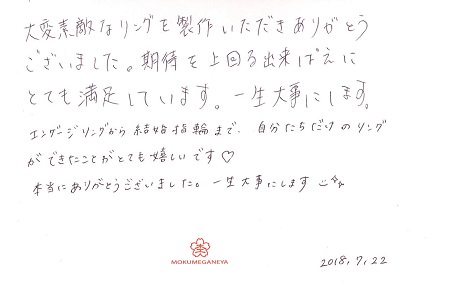 大変素敵なリングを製作いただきありがとう
ございました。期待を上回る出来ばえに
とても満足しています。一生大事にします。
エンゲージリングから結婚指輪まで、自分たちだけのリング
ができたことがとても嬉しいです♡
本当にありがとうございました。一生大事にします
MOKUMEGANEYA
2018.7.22